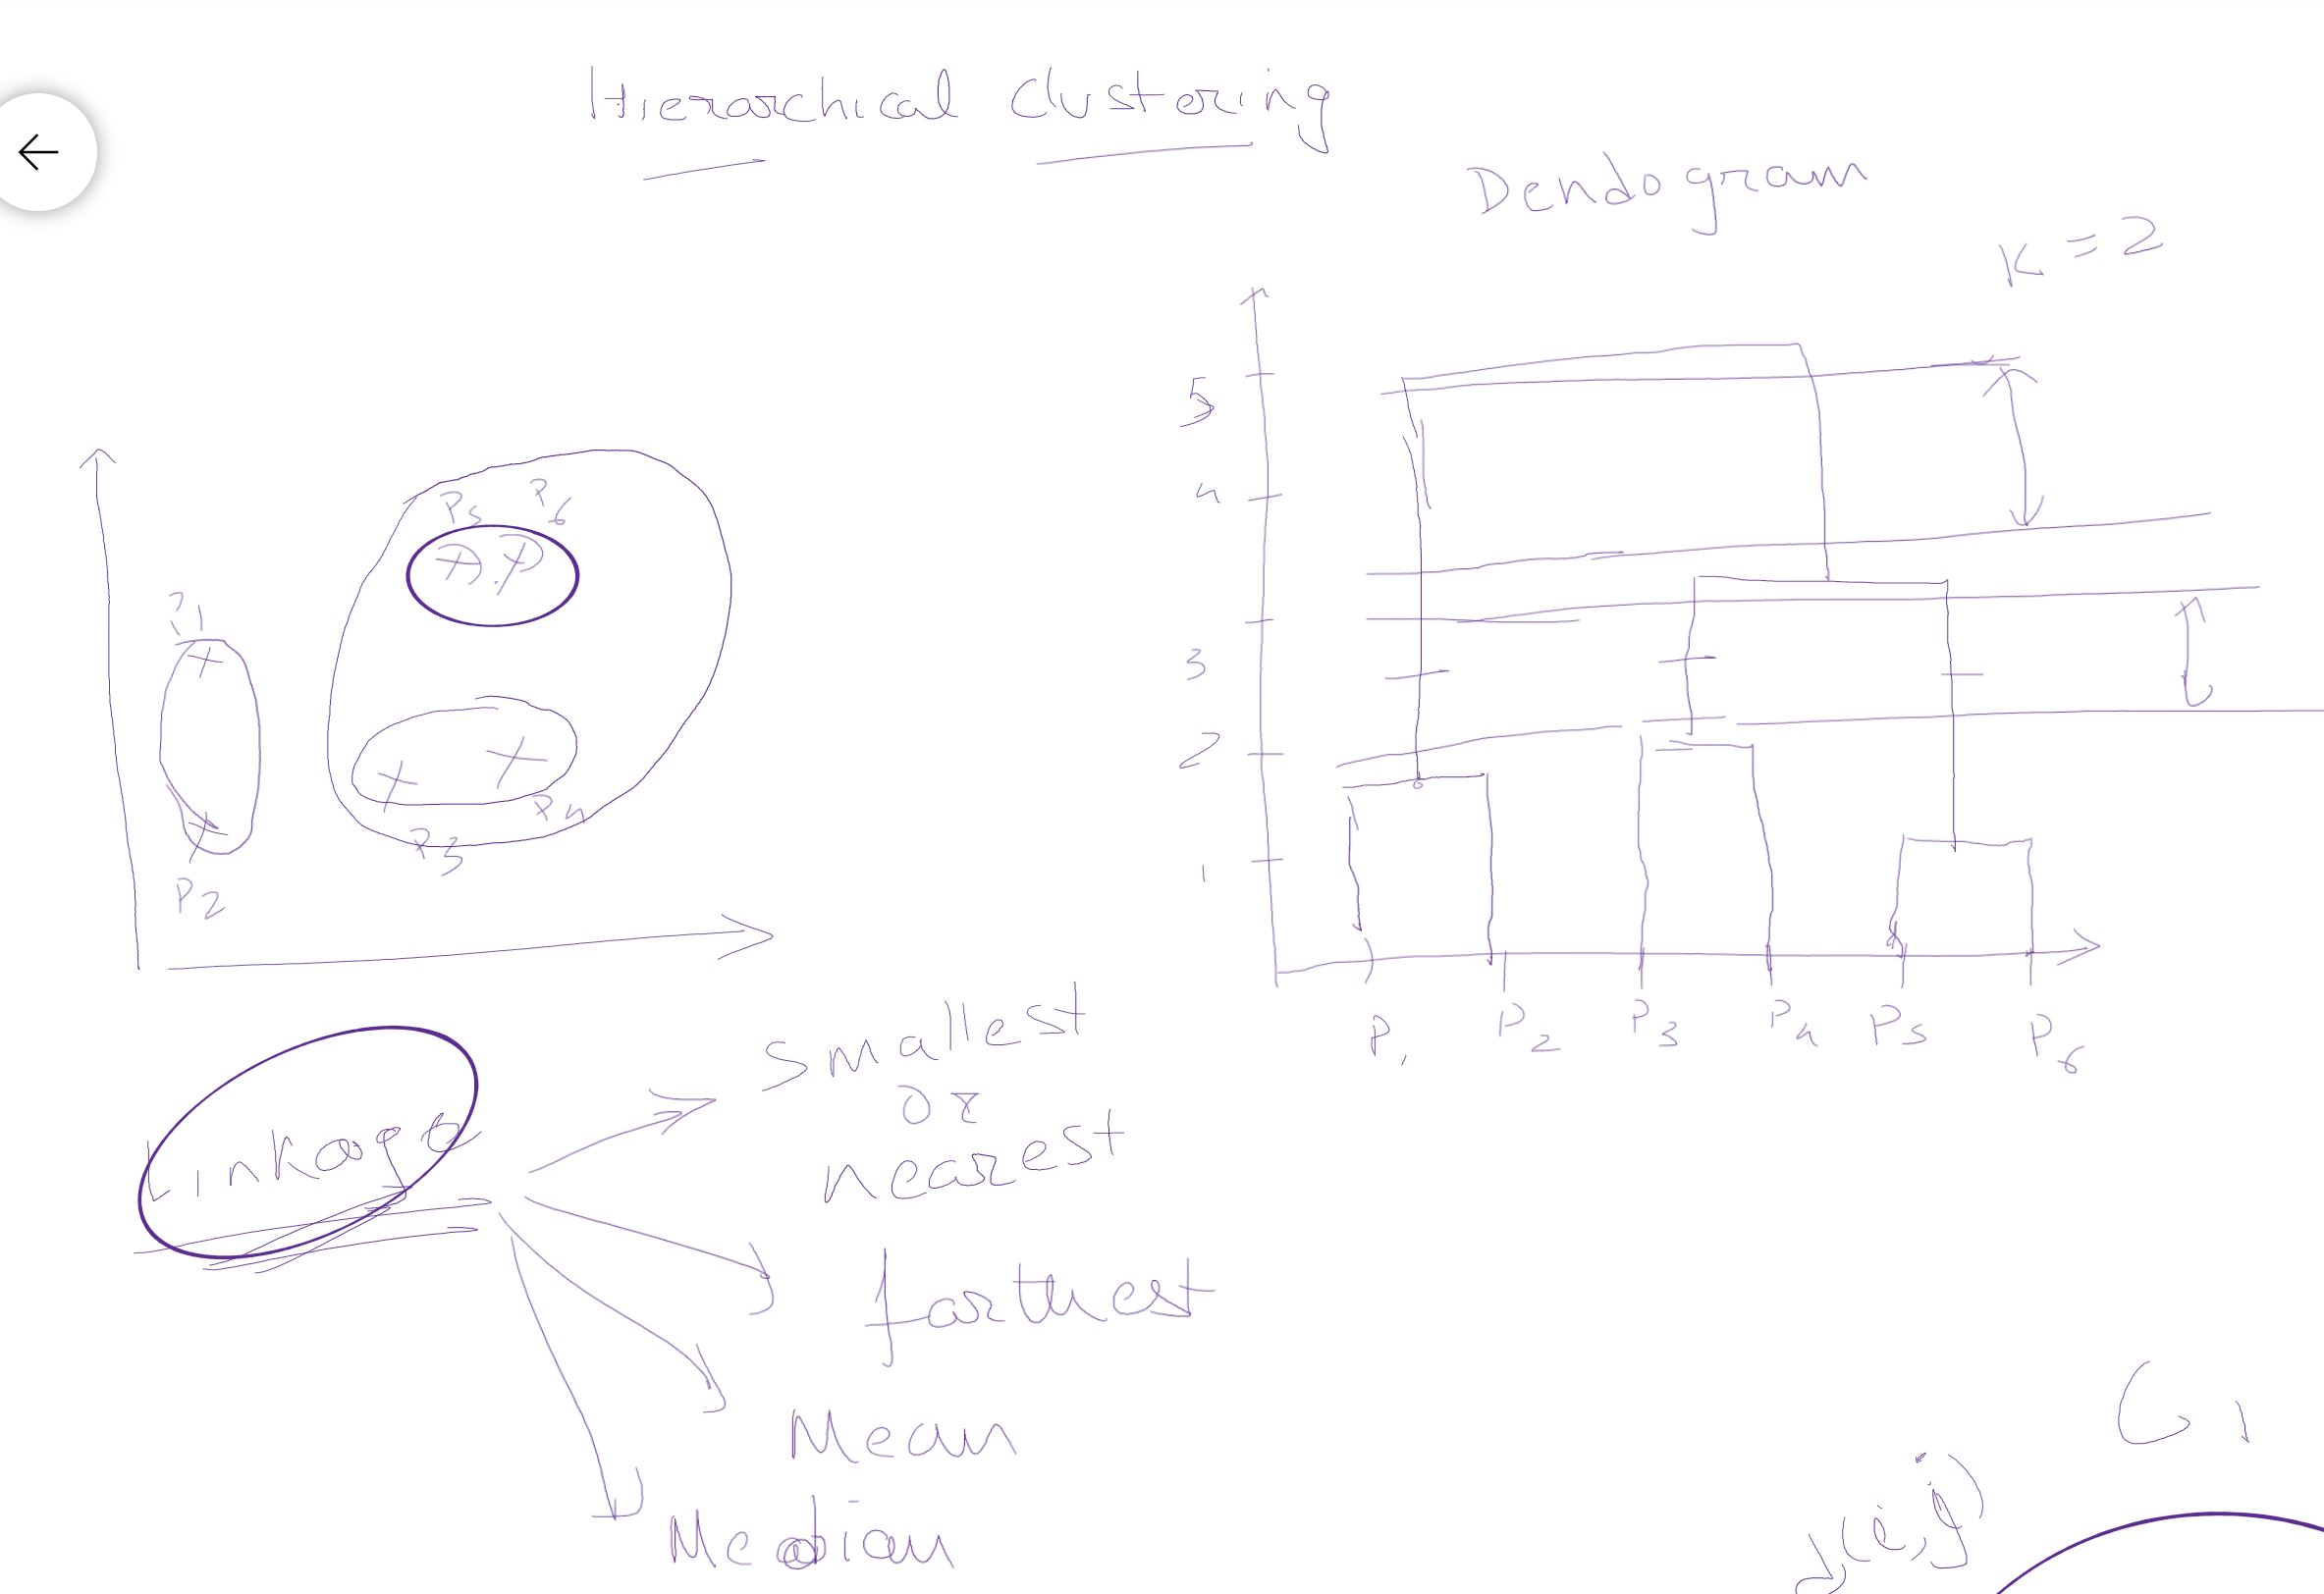 Hierarchical Clustering
Dendogram
K = 2
5
4
3
2
1
P1 P2 P3 P4 P5 P6
P5 P6
P1
P4
P3
P2
Linkage
Smallest
or
nearest
farthest
Mean
Median
C1
(i,j)